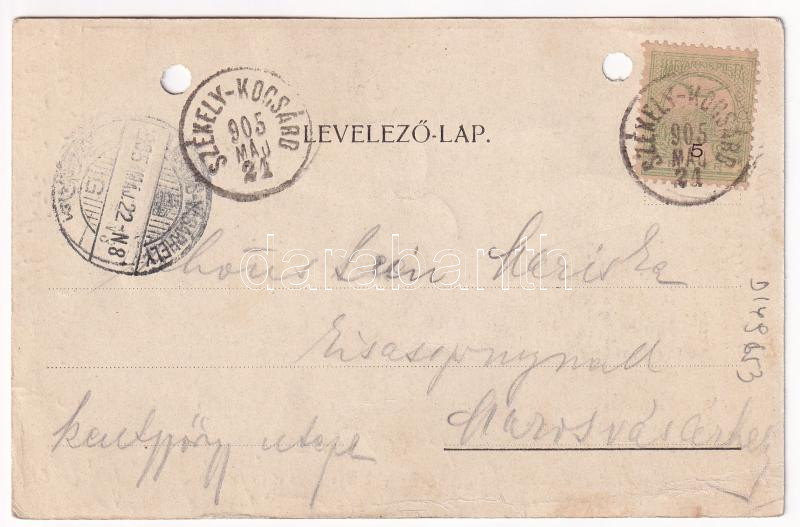 MAGYAR KIR. POSTA
5
SZÉKELY-KOCSÁRD
905
MÁJ
21
SZÉKELY-KOCSÁRD
905
MÁJ
21
LEVELEZŐ-LAP.
VÁSÁRHELY
905 MÁJ 22 -N8
Mariska
Kisasszonynak
Marosvásárhely
utcza
D148653
darabanth